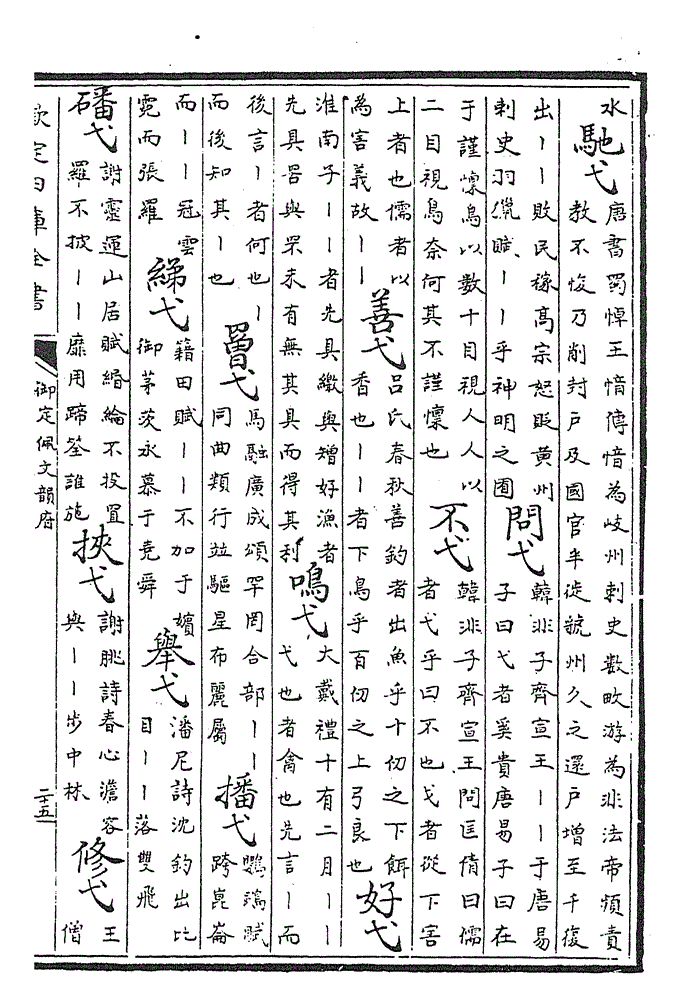 水馳弋唐書蜀悼王愔傳愔為岐州刺史數畋游為非法帝頻責
教不悛乃削封戶及國官半徙虢州久之還戶增至千復
出丨丨敗民稼高宗怒貶黄州
刺史羽獵賦丨丨乎神明之囿問弋韓非子齊宣王丨丨于唐易
子曰弋者奚貴唐易子曰在
于謹懍鳥以數十目視人人以
二目視鳥奈何其不謹懍也不弋韓非子齊宣王問匡倩曰儒
者弋乎曰不也弋者從下害
上者也儒者以
為害義故丨丨善弋吕氏春秋善釣者出魚乎十仞之下餌
香也丨丨者下鳥乎百仞之上弓良也好弋
淮南子丨丨者先具繳與矰好漁者
先具罟與罘未有無其具而得其利鳴弋大戴禮十有二月丨丨
弋也者禽也先言丨而
後言丨者何也丨
而後知其丨也罾弋馬融廣成頌罕罔合部丨丨
同曲類行並驅星布麗屬播弋鸚鵡賦
跨崑崙
而丨丨冠雲
霓而張羅綈弋籍田賦丨丨不加于嬪
御茅茨永慕于堯舜舉弋潘尼詩沈鈎出比
目丨丨落雙飛
磻弋謝靈運山居賦緡綸不投罝
羅不披丨丨靡用蹄筌誰施挾弋謝脁詩春心澹容
與丨丨步中林修弋王
僧
欽定四庫全書
御定佩文韻府
二十五